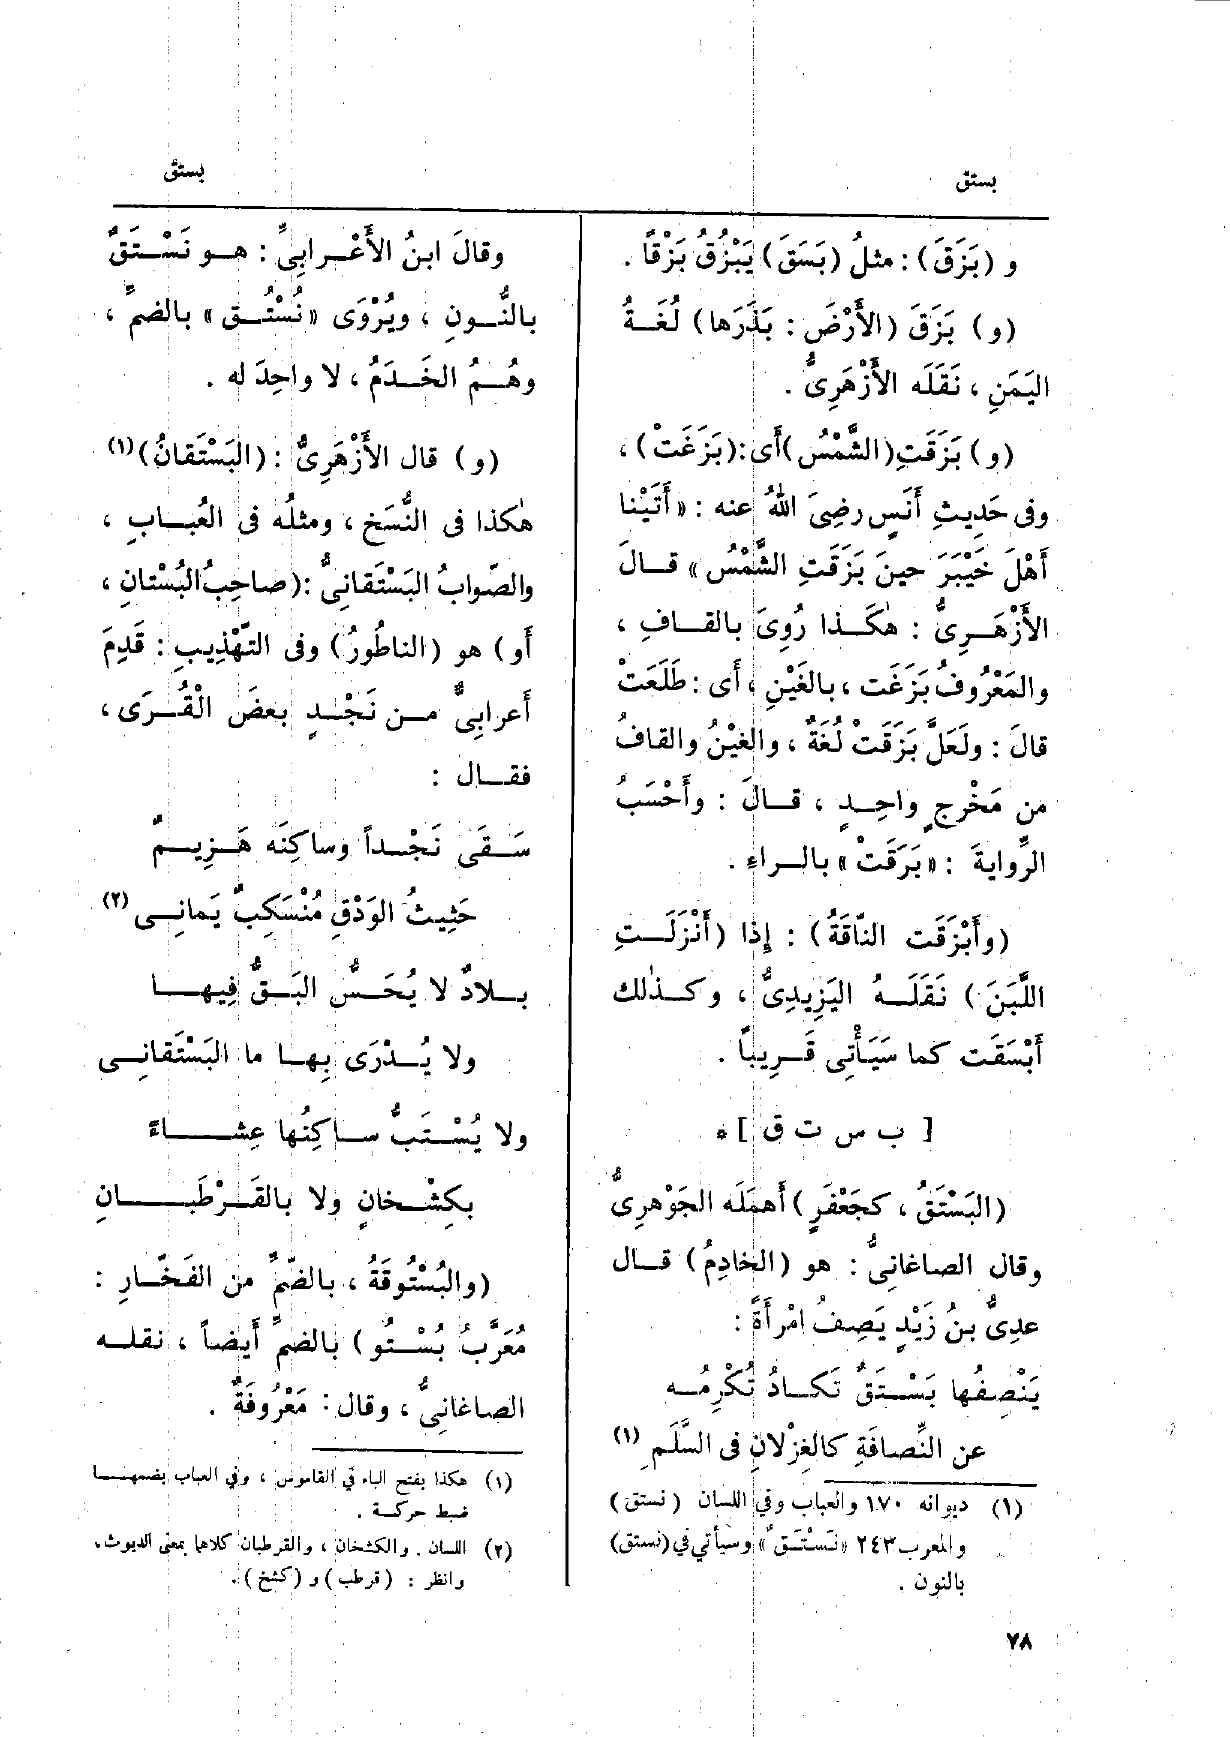 بستق
بستق
و (بَزَقَ) : مثلُ (بَسَقَ) يَبْزُقُ بَزْقاً .
(و) بَزَقَ (الأَرْضَ : بَذَرَها) لُغَـةُ
اليَمَنِ ، نَقَلَه الأَزْهَرِىُّ .
(و) بَزَقَتِ (الشَّمْسُ) أَى : (بَزَغَتْ) ،
وفى حَدِيثِ أَنَسٍ رضِىَ اللهُ عنه : «أَتَيْنا
أَهْلَ خَيْبَرَ حينَ بَزَقَتِ الشَّمْسُ» قـالَ
الأَزْهَـرِىُّ : هٰكَـذا رُوِىَ بالقـافِ ،
والمَعْرُوفُ بَزَغَت ، بالغَيْنِ ، أَى : طَلَعَتْ
قالَ : ولَعَلَّ بَزَقَتْ لُغَةٌ ، والغِيْنُ والقافُ
من مَخْرجٍ واحِـدٍ ، قـالَ : وأَحْسَبُ
الرِّوايةَ : «بَرَقَتْ» بالـراءِ .
(وأَبْزَقَت النّاقَةُ) : إِذا (أَنْزَلَـتِ
اللَّبَنَ) نَقَلَـهُ اليَزِيدِىُّ ، وكـذٰلك
أَبْسَقَت كما سَيَأْتِى قَـرِيباً .
[ ب س ت ق ] *
(البَسْتَقُ ، كجَعْفَرٍ) أَهمَلَه الجَوْهرِىُّ
وقال الصاغانىُّ : هو (الخادِمُ) قـال
عدِىُّ بنُ زَيْدٍ يَصِفُ امْرأَةً :
يَنْصِفُها بَسْـتَقٌ تَكـادُ تُكْرِمُـه
عن النِّصافَةِ كالغِزْلانِ فى السَّلَمِ (١)
(١) ديوانه ١٧٠ والعباب وفي اللسان (نستق)
والمعرب ٢٤٣ «نَسْتَقٌ» وسيأتي في (نستق)
بالنون .
وقالَ ابنُ الأَعْـرابِىِّ : هـو نَسْـتَقٌ
بالنُّـونِ ، ويُرْوَى «نُسْتُـق» بالضمِّ ،
وهُـمُ الخَـدَمُ ، لا واحِدَ له .
(و) قال الأَزْهَرِىُّ : (البَسْتَقانُ) (١)
هٰكذا فى النُّسَخِ ، ومثلُه فى العُبـابِ ،
والصّوابُ البَسْتَقانىُّ : (صاحِبُ البُسْتانِ ،
أَو) هو (الناطُورُ) وفى التَّهْذِيبِ : قَدِمَ
أَعرابِىٌّ مـن نَجْـدٍ بعضَ الْقُـرَى ،
فقـال :
سَـقَى نَجْـداً وساكِنَه هَـزِيـمٌ
حَثِيثُ الوَدْقِ مُنْسَكِبٌ يَمانِـى (٢)
بـلادٌ لا يُحَـسُّ البَـقُّ فِيهـا
ولا يُـدْرَى بِهـا ما البَسْتَقانِـى
ولا يُسْـتَبُّ سـاكِنُها عِشـاءً
بكِشْـخانٍ ولا بالقَـرْطَبـانِ
(والبُسْتُوقَةُ ، بالضّمِّ من الفَخّـارِ :
مُعَرَّبُ بُسْـتُو) بالضمِّ أَيضاً ، نقلـه
الصاغانىُّ ، وقال : مَعْرُوفَةٌ .
(١) هكذا بفتح الباء في القاموس ، وفي العباب بضمهـا
ضبط حركـة .
(٢) اللسان . والكشخان ، والقرطبان كلاهما بمعنى الديوث ،
وانظر : (قرطب) و (كشخ) .
٧٨